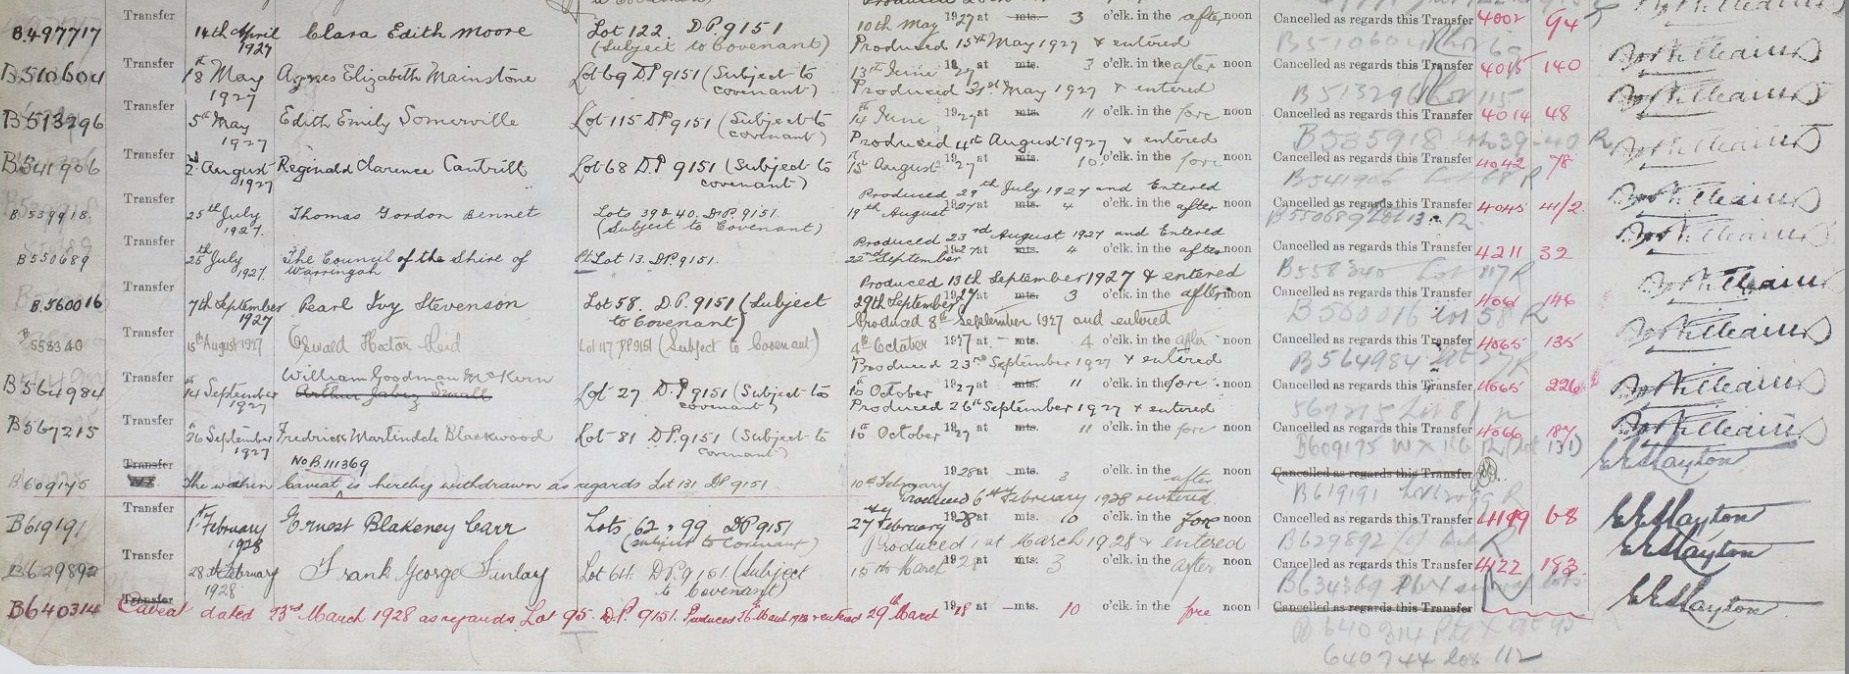 B.497717 Transfer 14th April 1927 Clara Edith Moore Lot 122. D.P. 9151 (Subject to Covenant) 10th May 1927 at mts. 3 o'clk. in the after noon Cancelled as regards this Transfer 4002 94
Produced 15th May 1927 & entered
B510604 Transfer 18th May 1927 Agnes Elizabeth Mainstone Lot 69 D.P 9151 (Subject to covenant) 13th June 1927 at mts. 3 o'clk. in the after noon Cancelled as regards this Transfer 4015 140
Produced 31st May 1927 & entered
B513296 Transfer 5th May 1927 Edith Emily Somerville Lot 115 DP 9151 (Subject to covenant) 14th June 1927 at mts. 11 o'clk. in the fore noon Cancelled as regards this Transfer 4014 48
Produced 4th August 1927 & entered
B541906 Transfer 2nd August 1927 Reginald Clarence Cantrill Lot 68 D.P 9151 (Subject to covenant) 15th August 1927 at mts. 10 o'clk. in the fore noon Cancelled as regards this Transfer 4042 78
Produced 29th July 1927 and Entered
B539918. Transfer 25th July 1927. Thomas Gordon Bennet Lots 39 & 40. D.P. 9151. (Subject to Covenant) 19th August 1927 at mts. 4 o'clk. in the after noon Cancelled as regards this Transfer 4045 41/2
Produced 23rd August 1927 and Entered
B550689 Transfer 25th July 1927. The Council of the Shire of Warringah Pt Lot 13. D.P. 9151. 22nd September 1927 at mts. 4 o'clk. in the after noon Cancelled as regards this Transfer 4211 32
Produced 13th September 1927 & entered
B.560016 Transfer 7th September 1927 Pearl Ivy Stevenson Lot 58. D.P. 9151 (Subject to Covenant) 29th September 1927 at mts. 3 o'clk. in the after noon Cancelled as regards this Transfer 146
Produced 8th September 1927 and entered
B558340 Transfer 15th August 1927 Oswald Hector Reid Lot 117 DP 9151 (Subject to Covenant) 4th October 1927 at mts. 4 o'clk. in the after noon Cancelled as regards this Transfer 4065 135
Produced 23rd September 1927 & entered
B564984 Transfer 14th September 1927 William Goodman McKern Arthur Jabez Small Lot 27 D.P 9151 (Subject to covenant) 10th October 1927 at mts. 11 o'clk. in the fore noon Cancelled as regards this Transfer 4065 226
Produced 26th September 1927 & entered
B567215 Transfer 26 September 1927 Fredrick Martindale Blackwood Lot 81 D.P 9151 (Subject to covenant) 10th October 1927 at mts. 11 o'clk. in the fore noon Cancelled as regards this Transfer 4066 187
No B.111369
B609175 Transfer WX The within Caveat is hereby withdrawn as regards Lot 131 DP 9151 10th February 1928 at mts. 3 o'clk. in the after noon Cancelled as regards this Transfer
Produced 6th February 1928 & entered.
B619191 Transfer 1st February 1928 Ernest Blakeney Carr Lots 62 & 99 DP 9151 (subject to covenant) 27th February 1928 at mts. 10 o'clk. in the fore noon Cancelled as regards this Transfer 4119 68
Produced 1st March 1928 & entered
B629892 Transfer 28th February 1928 Frank George Finlay Lot 64. D.P. 9151. (Subject to Covenant) 15th March 1928 at mts. 3 o'clk. in the after noon Cancelled as regards this Transfer 4122 183
B640314 Transfer Caveat dated 23rd March 1928 as regards Lot 95. D.P. 9151. Produced 26th March 1928 & entered 29th March 1928 at mts. 10 o'clk. in the fore noon Cancelled as regards this Transfer
B640314
640744 Lot 112